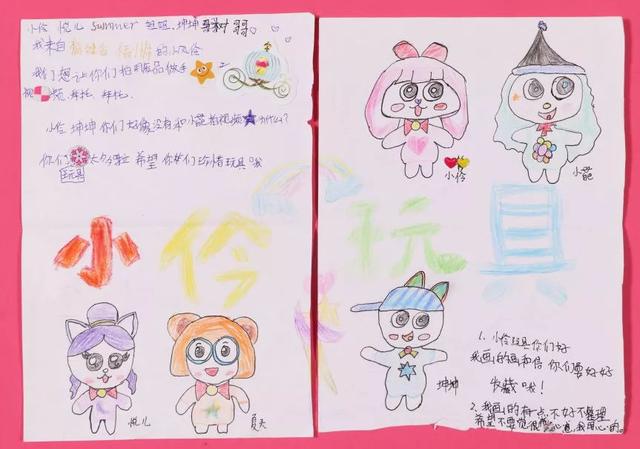 小伶 悦儿 summer 姐姐, 坤坤
我来自 的小风伶
我们想让你们拍 品做手
视 频. 拜托. 拜托.
小伶 坤坤 你们好像没有和小葩拍视频
你们 希望 你们珍惜玩具哦
玩具
小伶
小葩
小伶玩具
悦儿
夏天
坤坤
1. 小伶玩具你们好
我画的画和信 你们要好好
收藏哦!
2. 我画的有点不好不整理
希望不要 心意,我用心的。